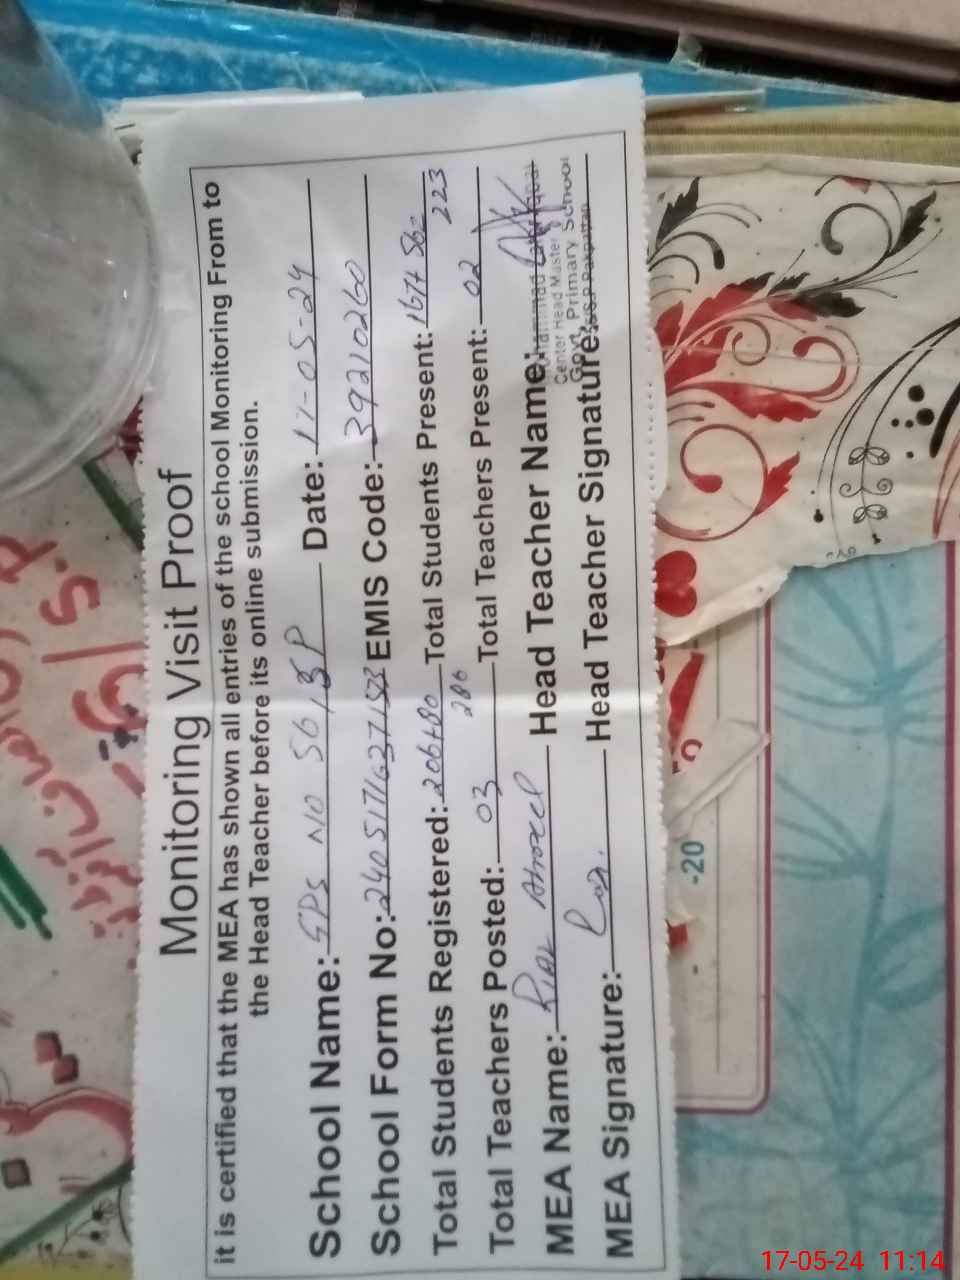 Monitoring Visit Proof
it is certified that the MEA has shown all entries of the school Monitoring From to
the Head Teacher before its online submission.
School Name: GPS NO 56 / SP Date: 17-05-24
School Form No: EMIS Code: 39210260
Total Students Registered: 206+80 Total Students Present: 167+56=
286 223
Total Teachers Posted: 03 Total Teachers Present: 02
MEA Name: Riaz Head Teacher Name:
Center Head Master
Govt. Primary School
MEA Signature: Head Teacher Signature:
-20
17-05-24 11:14